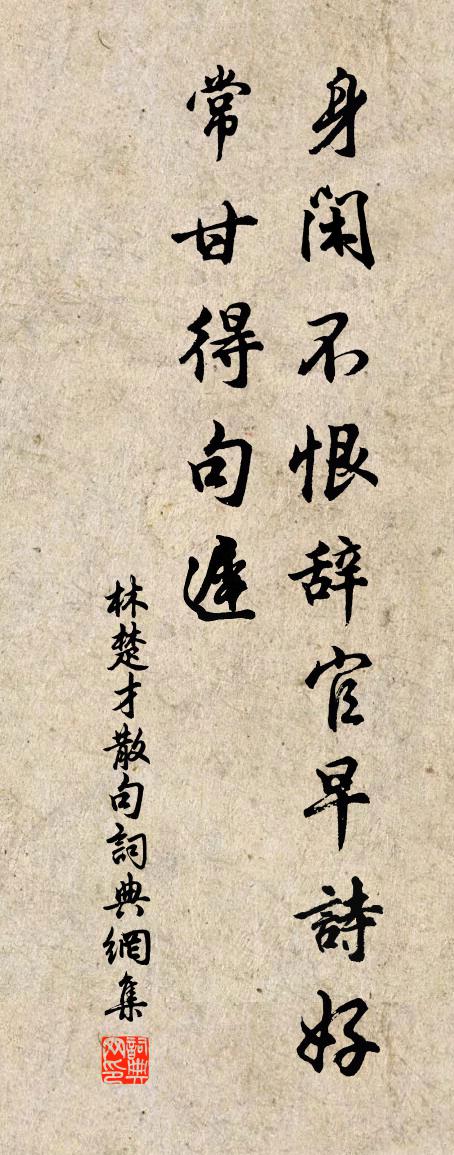 身閑不恨辞官早詩好
常甘得句遲
林楚才散句詞典網集
詞典网印